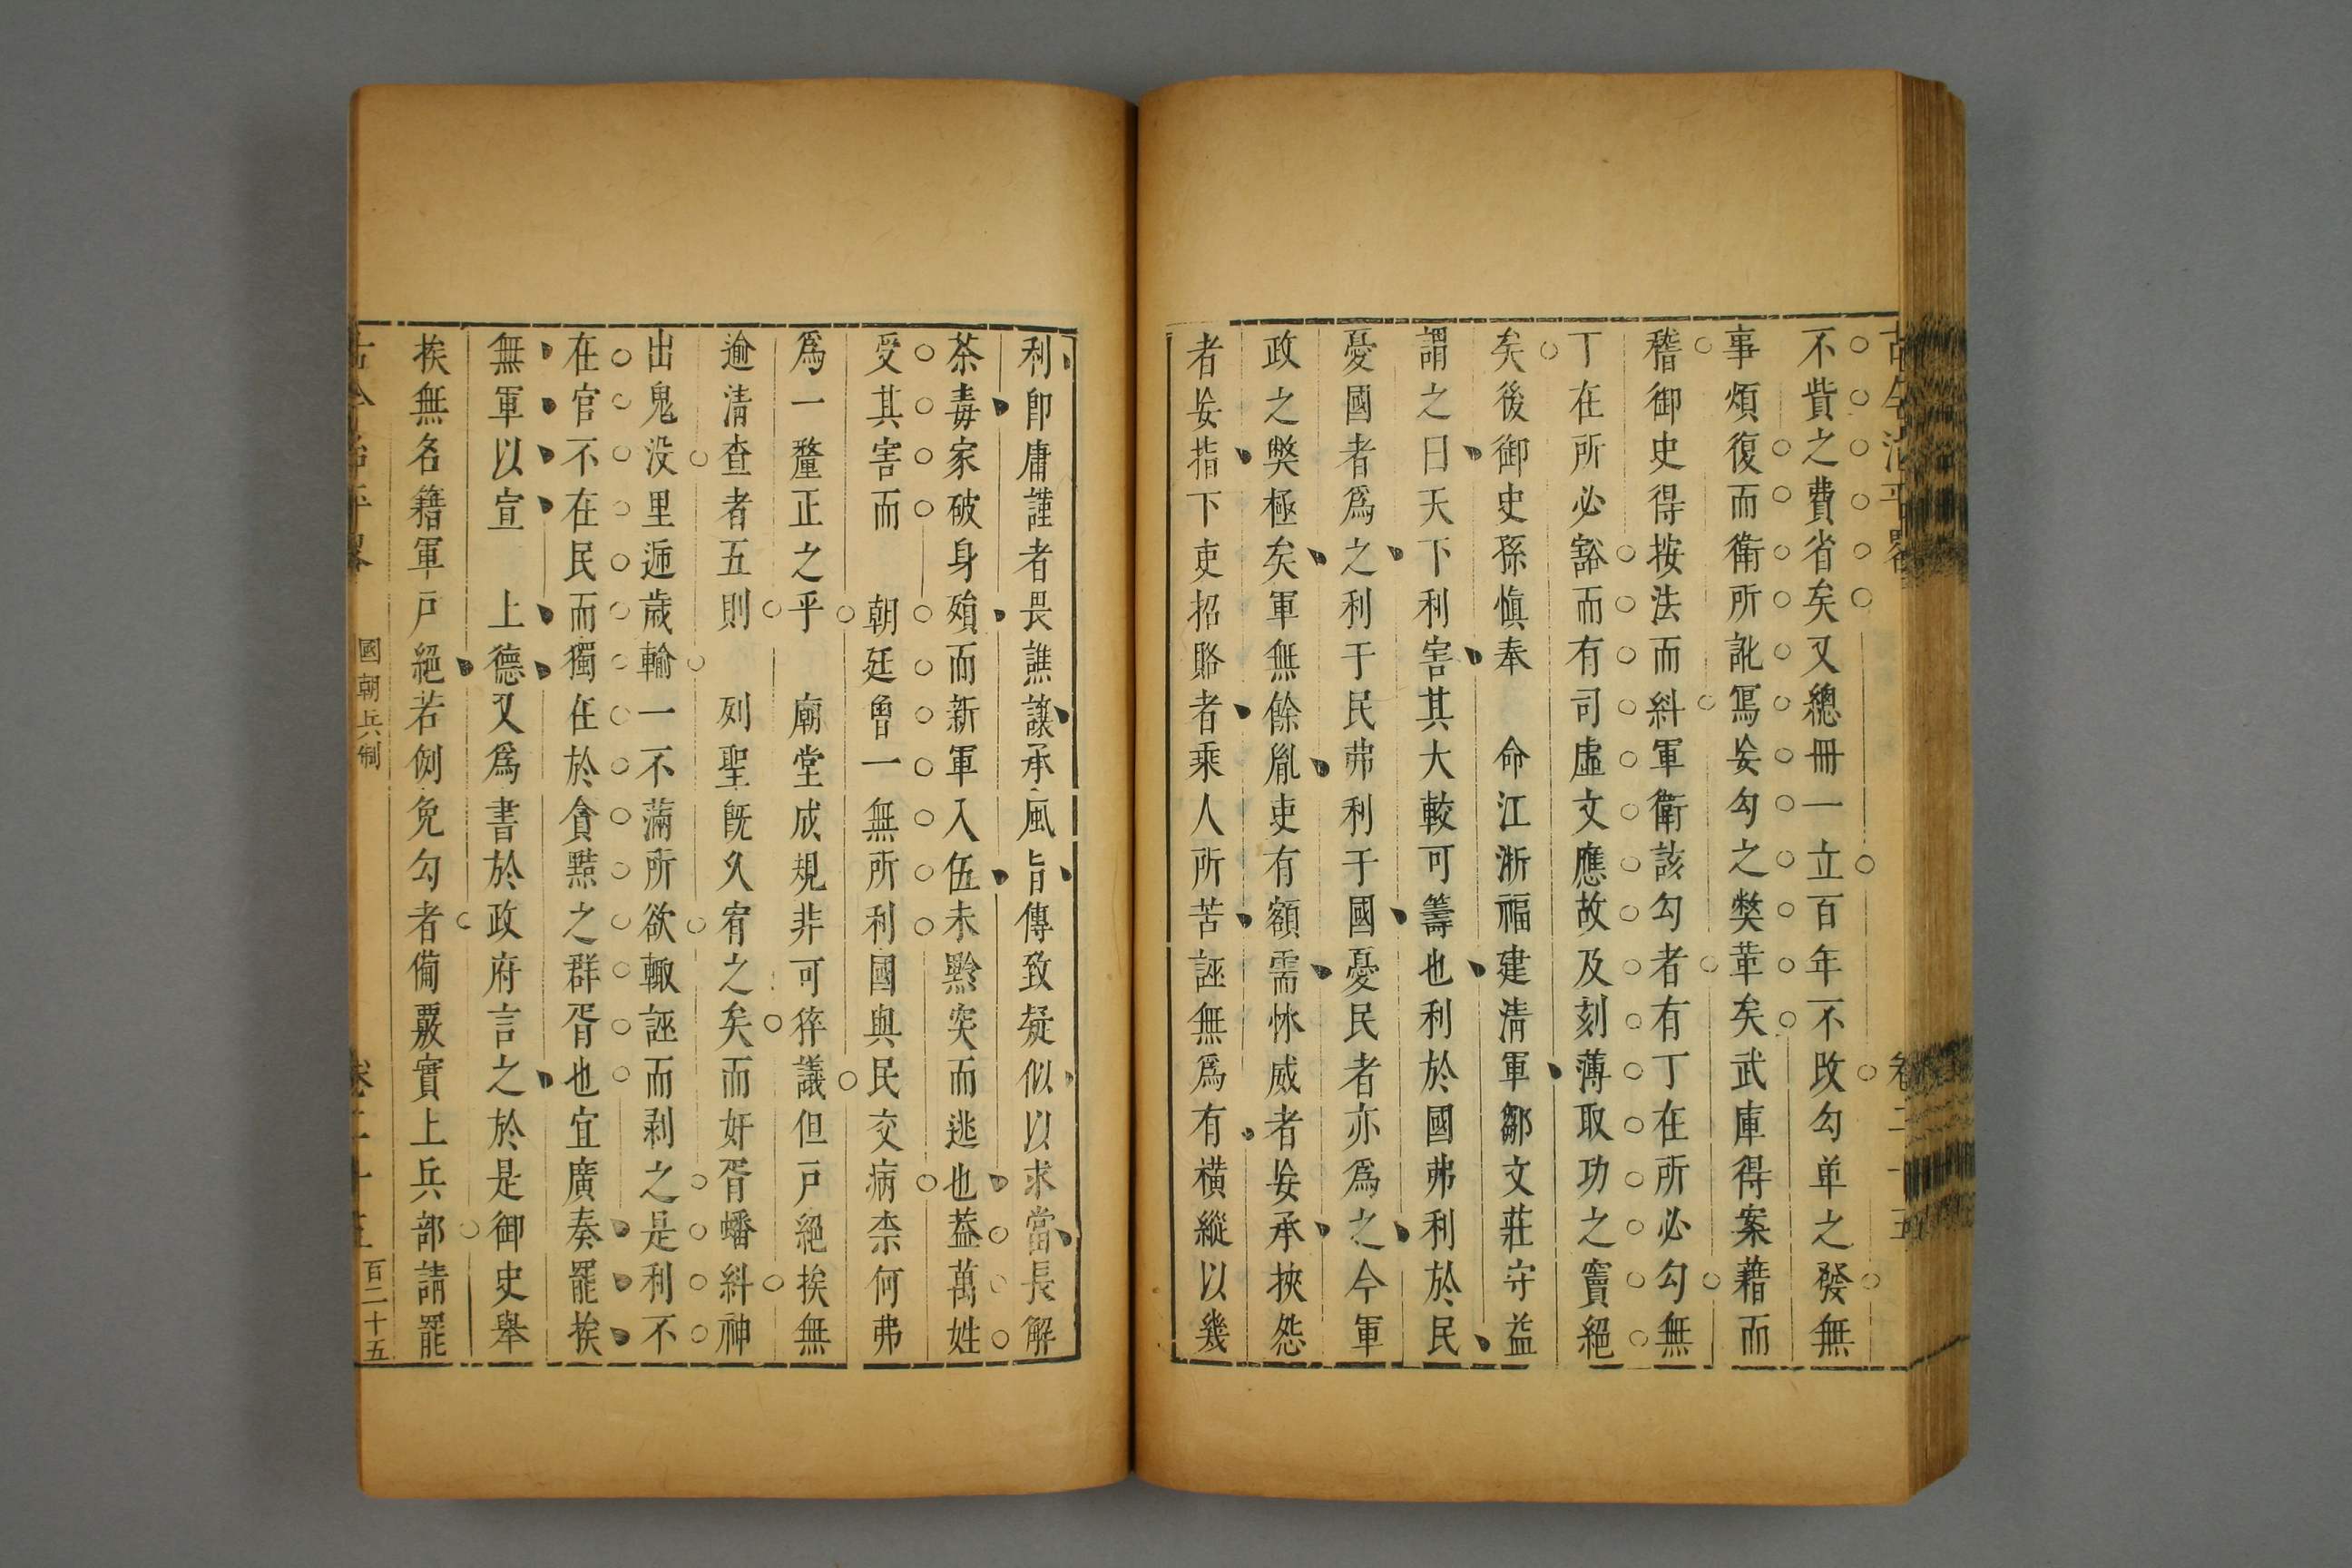 古今治平畧
卷二十五
不貲之費省矣又總冊一立百年不改勾单之發無
事煩復而衛所訛寫妄勾之弊革矣武庫得案藉而
稽御史得按法而糾軍衛該勾者有丁在所必勾無
丁在所必豁而有司虛文應故及刻薄取功之竇絕
矣後御史孫慎奉　命江浙福建清軍鄒文莊守益
謂之曰天下利害其大較可籌也利於國弗利於民
憂國者爲之利于民弗利于國憂民者亦爲之今軍
政之弊極矣軍無餘胤吏有額需怵威者妄承挾怨
者妄指下吏招賂者乘人所苦誣無爲有橫縱以幾
利卽庸謹者畏譙讓承風旨傳致疑似以求當長解
茶毒家破身殞而新軍入伍未黔突而逃也葢萬姓
受其害而　朝廷曾一無所利國與民交病柰何弗
爲一釐正之乎　廟堂成規非可猝議但戸絕挨無
逾清查者五則　列聖旣久宥之矣而奸胥蟠糾神
出鬼没里逓歲輸一不滿所欲輙誣而剥之是利不
在官不在民而獨在於貪黠之群胥也宜廣奏罷挨
無軍以宣　上德又爲書於政府言之於是御史舉
挨無名籍軍戸絕若例免勾者備覈實上兵部請罷
古今治平畧
國朝兵制
卷二十五
百二十五